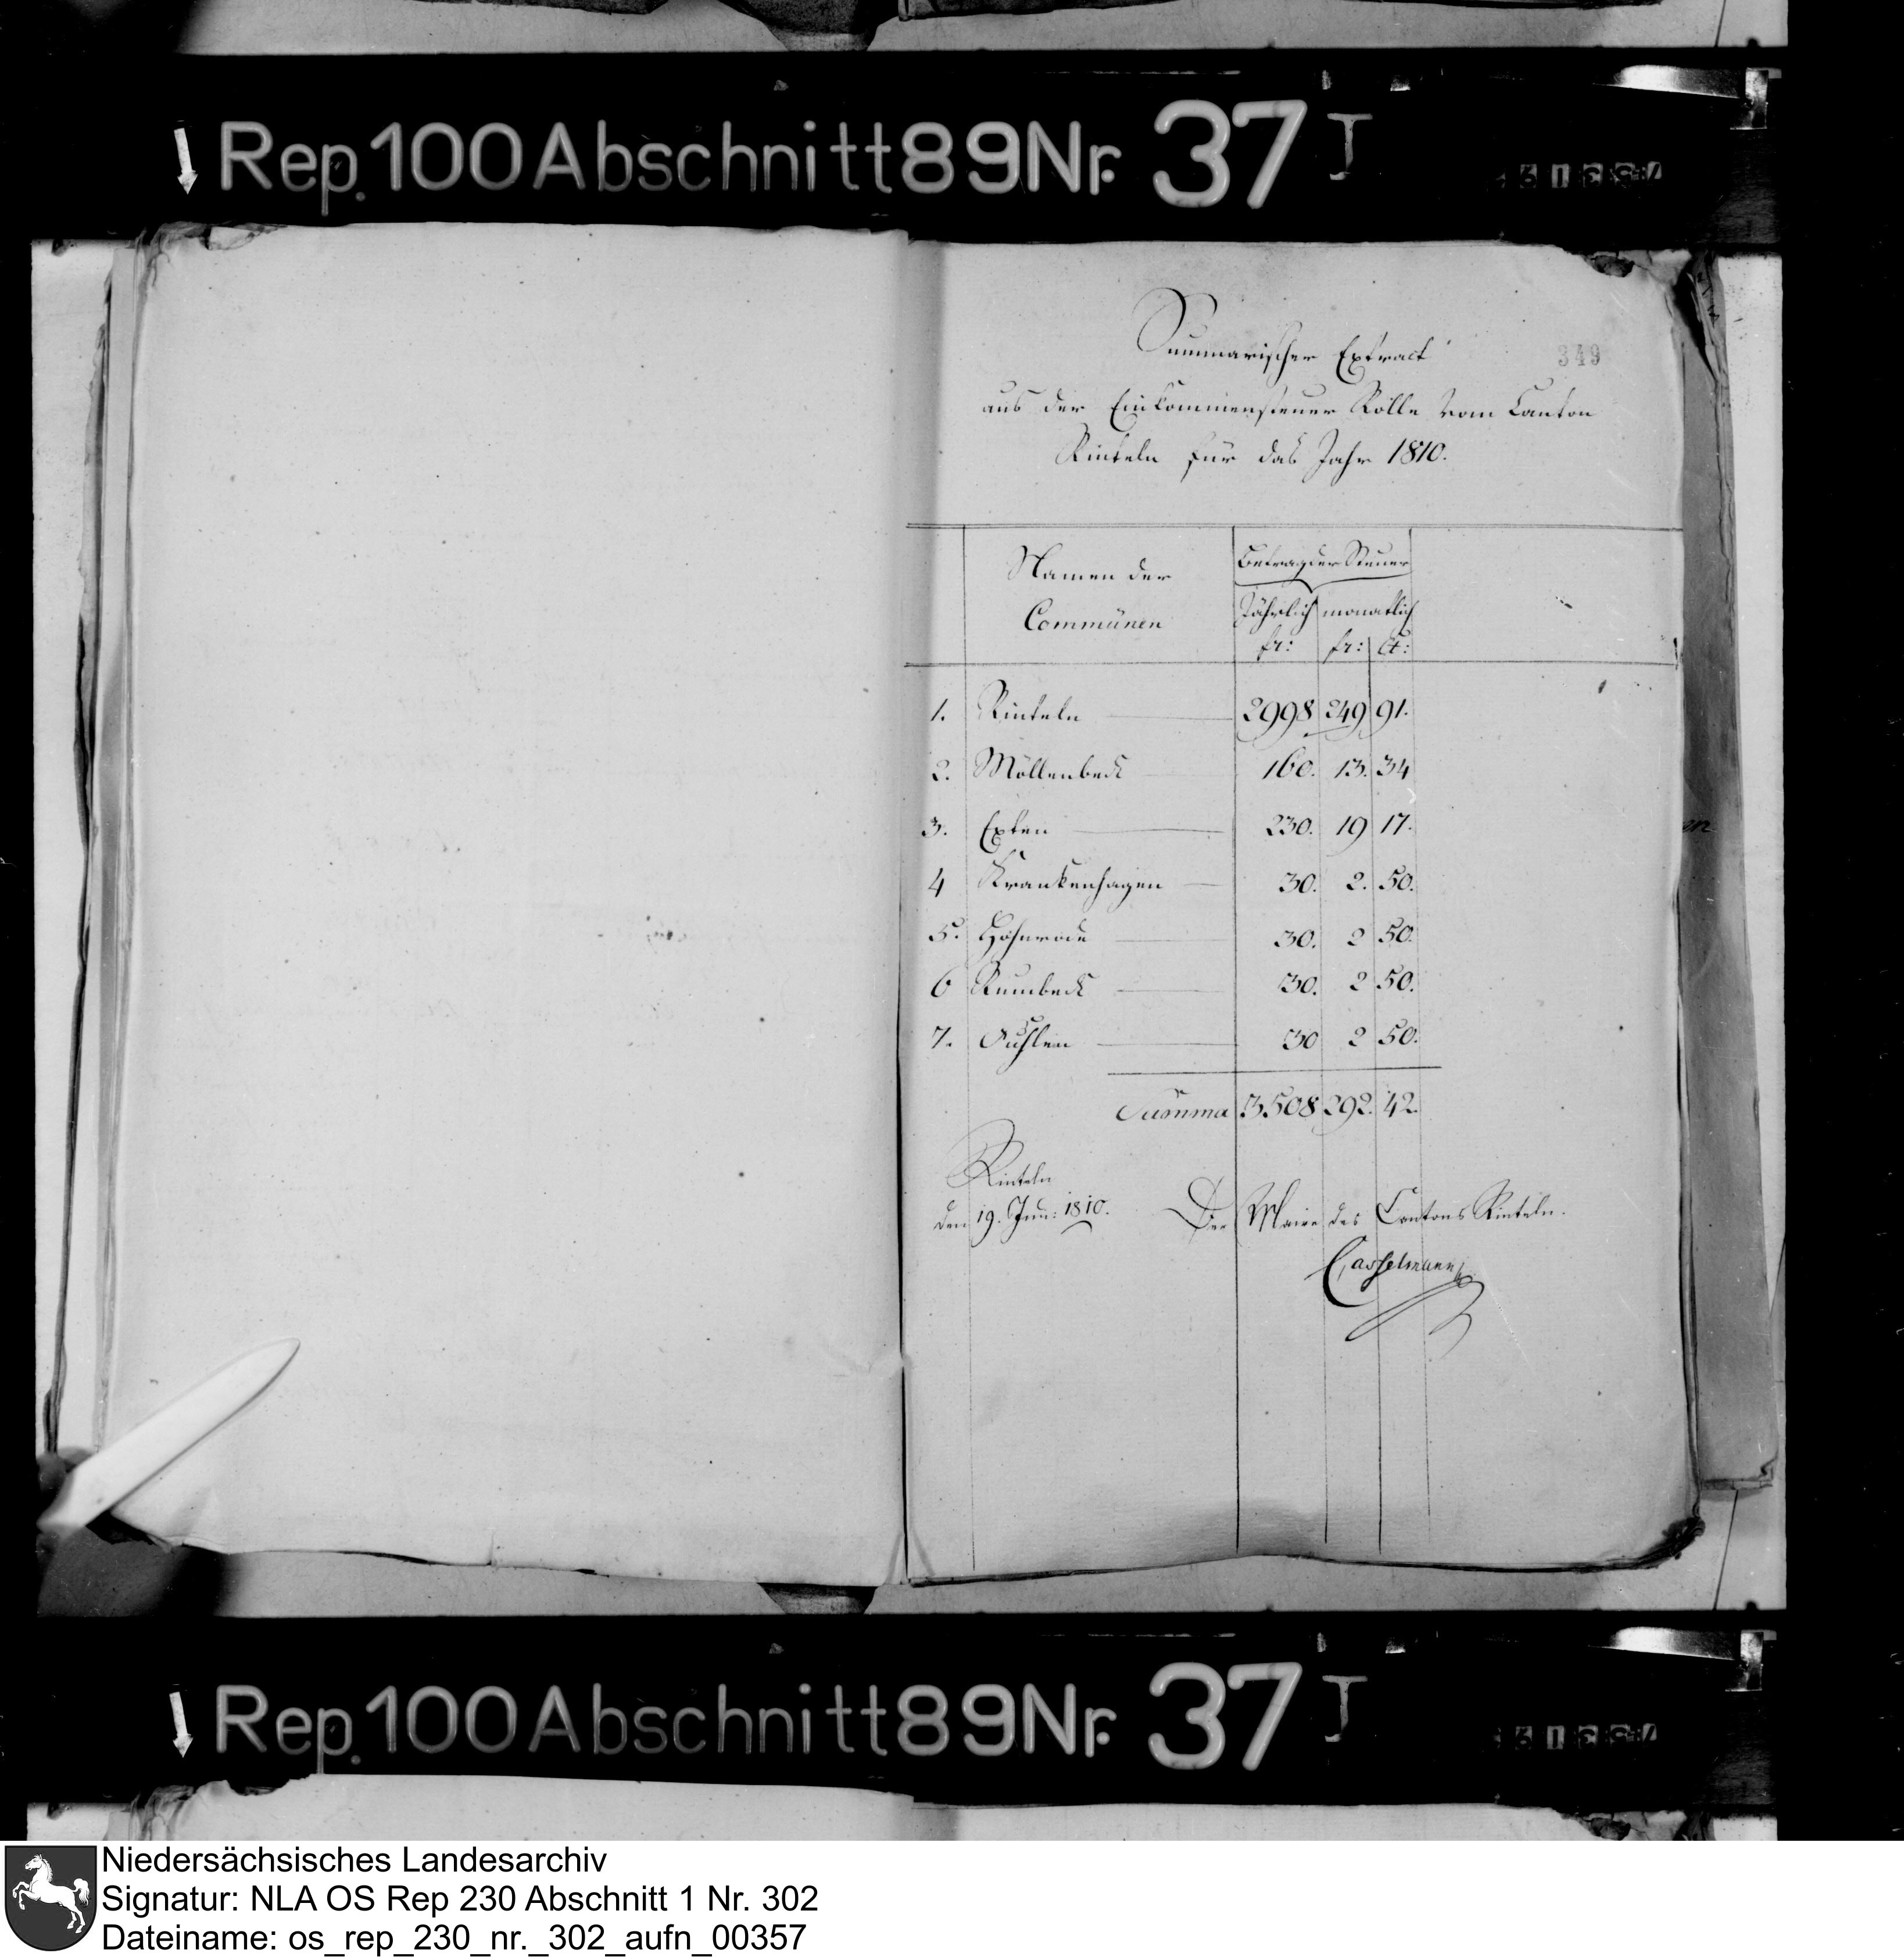 Rep. 100 Abschnitt 89 Nr. 37 I
349
Summarischer Extract
aus der Einkommensteuer Rolle vom Canton
Rinteln für das Jahr 1810.
Namen der Communen
Betrag der Steuer
Jährlich monatlich
fr: fr: Ct:
1. Rinteln 2998 249 91.
2. Möllenbeck 160. 13. 34
3. Exten 230. 19 17.
4 Krankenhagen 30. 2. 50.
5. Hohnrode 30. 2 50.
6 Rumbeck 30. 2 50.
7. Öuhlen 30 2 50.
Summa 3508 292. 42.
Rinteln
den 19. Jun: 1810. Der Maire des Cantons Rinteln.
Casselmann
Rep. 100 Abschnitt 89 Nr. 37 I
Niedersächsisches Landesarchiv
Signatur: NLA OS Rep 230 Abschnitt 1 Nr. 302
Dateiname: os_rep_230_nr._302_aufn_00357